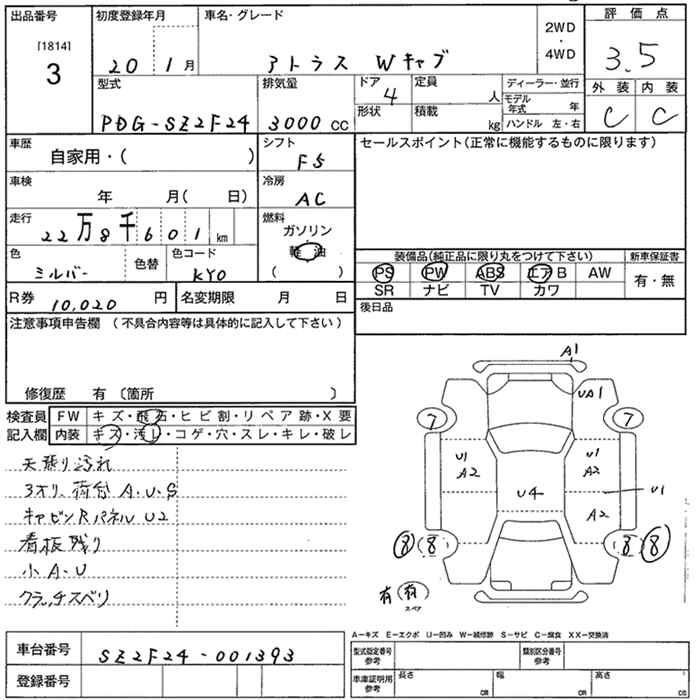 出品番号
[1814]
3
初度登録年月
20 1月
車名・グレード
アトラス Wキャブ
2WD
・
4WD
評価点
3.5
外装 内装
C C
型式
PDG-SZ2F24
排気量
3000 CC
ドア
4
定員
人
形状
積載
kg
ディーラー・並行
モデル年式 年
ハンドル 左・右
車歴
自家用・( )
シフト
F5
セールスポイント(正常に機能するものに限ります)
車検
年 月( 日)
冷房
AC
走行
22万8千601km
燃料
ガソリン
軽油
( )
色
シルバー
色替
色コード
KY0
装備品(純正品に限り丸をつけて下さい)
PS PW ABS エアB AW
SR ナビ TV カワ
新車保証書
有・無
R券
10,020円
名変期限 月 日
後日品
注意事項申告欄 (不具合内容等は具体的に記入して下さい)
修復歴 有 〔箇所 〕
検査員記入欄
FW キズ・飛石・ヒビ割・リペア跡・X要
内装 キズ・汚レ・コゲ・穴・スレ・キレ・破レ
天張り汚れ
3オリ、荷台 A.U.S
キャビンRパネル U2
看板残り
小A.U
クラッチスベリ
A1
UA1
7 7
U1
A2
U1
A2
U4
U1
A2
8 8 8 8
有 (有)
スペア
A-キズ E-エクボ U-凹み W-補修跡 S-サビ C-腐食 XX-交換済
車台番号
SZ2F24-001393
登録番号
型式指定番号参考
類別区分番号参考
車庫証明用参考
長さ cm
幅 cm
高さ cm